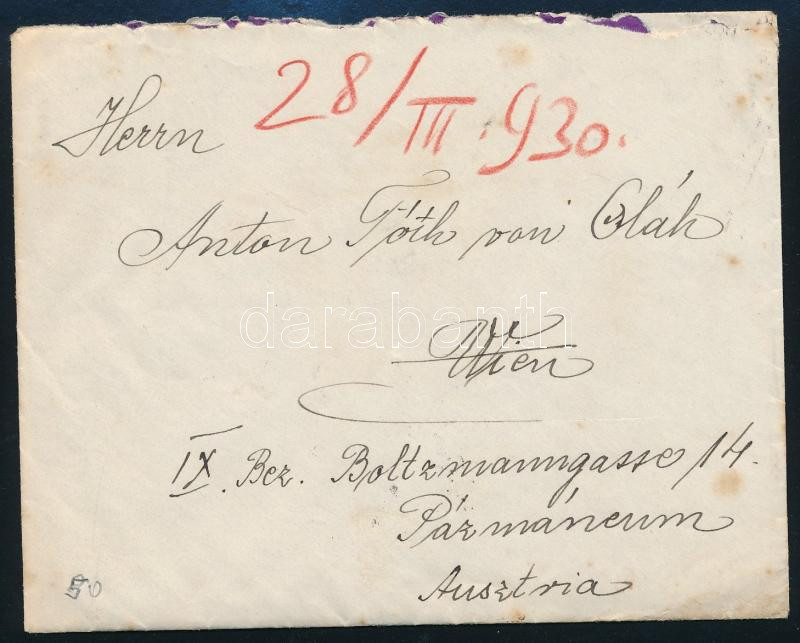 28/III.930.
Herrn
Anton Tóth von Oláh
darabanth
Wien
IX. Bez. Boltzmanngasse 14.
Pázmáneum
Ausztria